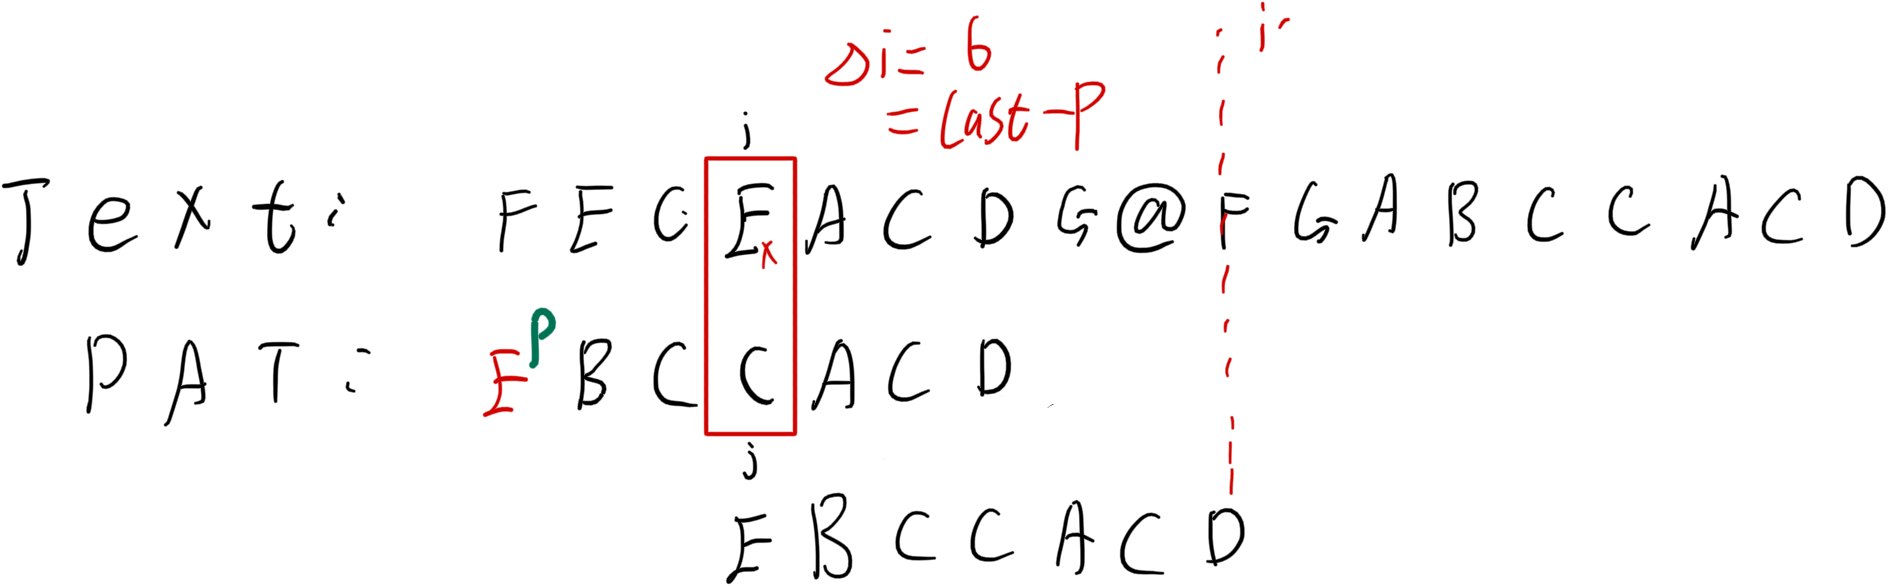 i
Δi = 6
= last - P
i
Text: F E C E A C D G @ F G A B C C A C D
x
P
PAT: E B C C A C D
j
E B C C A C D